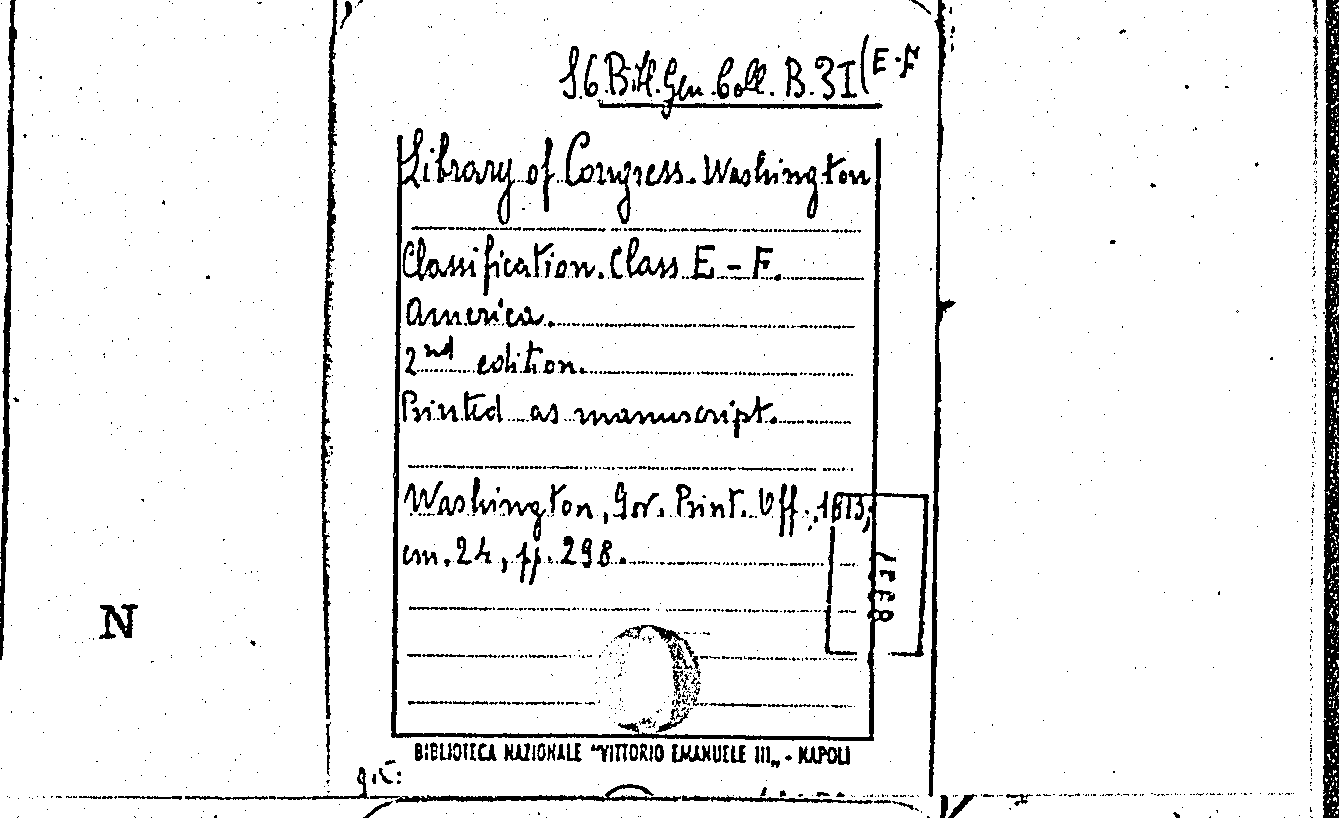 S.6.Bibl.Gen.Coll. B.31(E-F
Library of Congress. Washington
Classification. Class E - F.
America.
2nd edition.
Printed as manuscript.
Washington, Gov. Print. Off., 1913,
cm. 24, pp. 298.
N
BIBLIOTECA NAZIONALE "VITTORIO EMANUELE III„ - NAPOLI